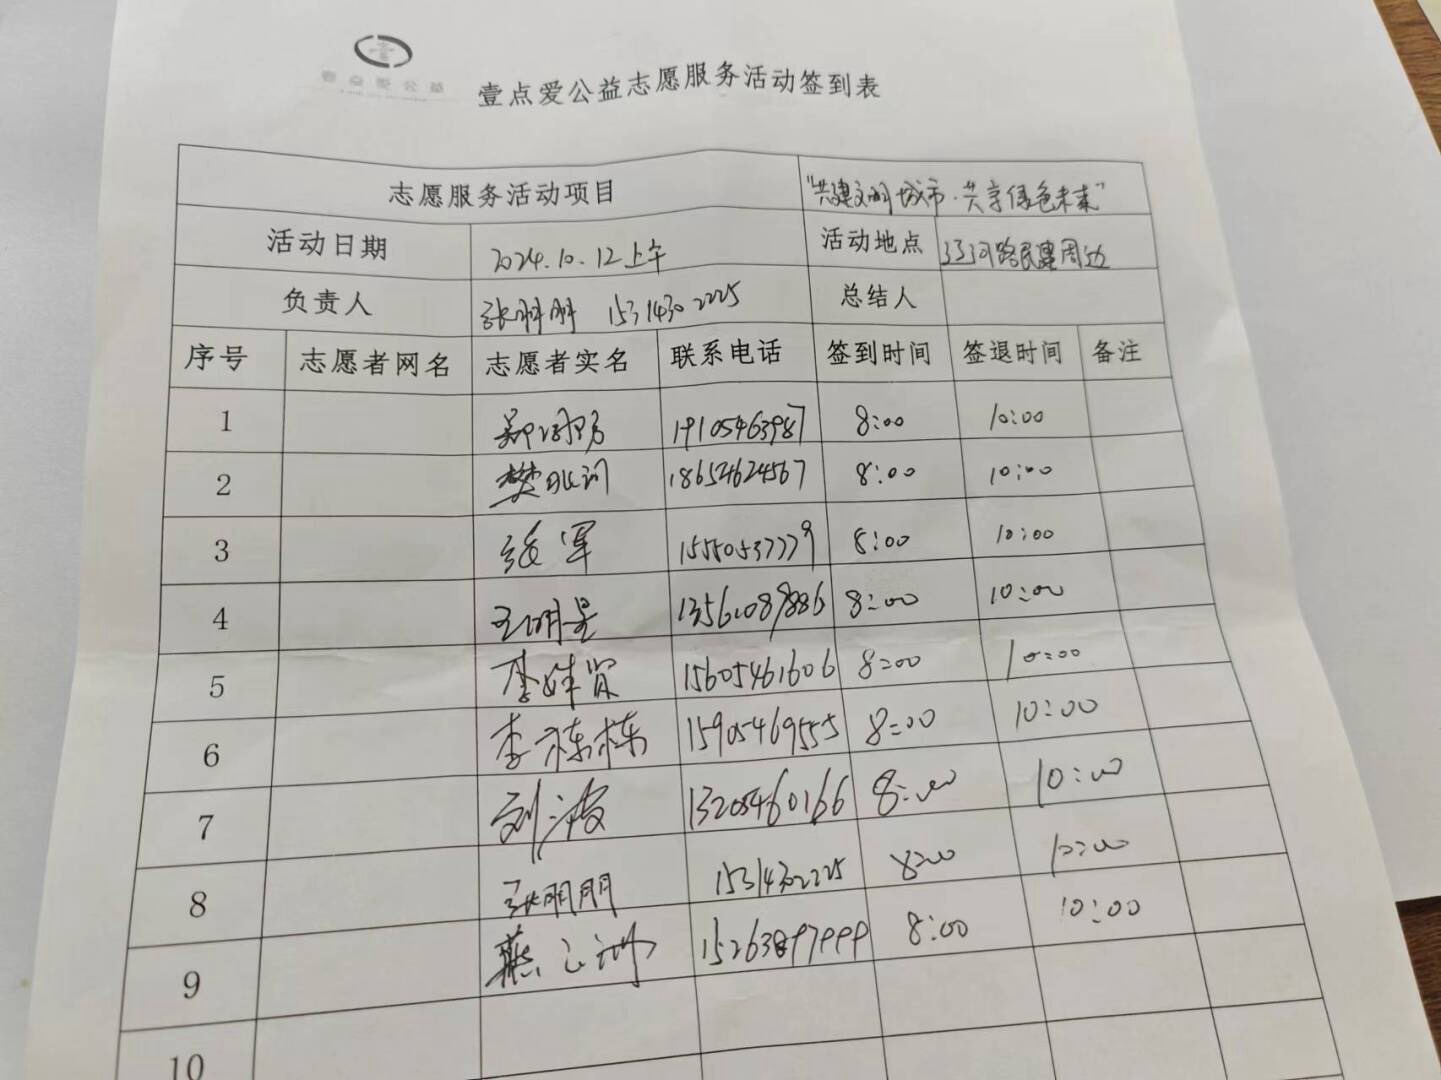 壹点爱公益志愿服务活动签到表
志愿服务活动项目 "共建文明城市·共享绿色未来"
活动日期 2024.10.12上午 活动地点 辽河路民建周边
负责人 张朋朋 15314302225 总结人
序号 志愿者网名 志愿者实名 联系电话 签到时间 签退时间 备注
1 19105463987 8:00 10:00
2 18654624567 8:00 10:00
3 张军 15550537779 8:00 10:00
4 王明星 8:00 10:00
5 李 贤 15605461606 8:00 10:00
6 李栋栋 15905469555 8:00 10:00
7 刘波 13205460166 8:00 10:00
8 张朋朋 15314302225 8:00 10:00
9 燕 8:00 10:00
10